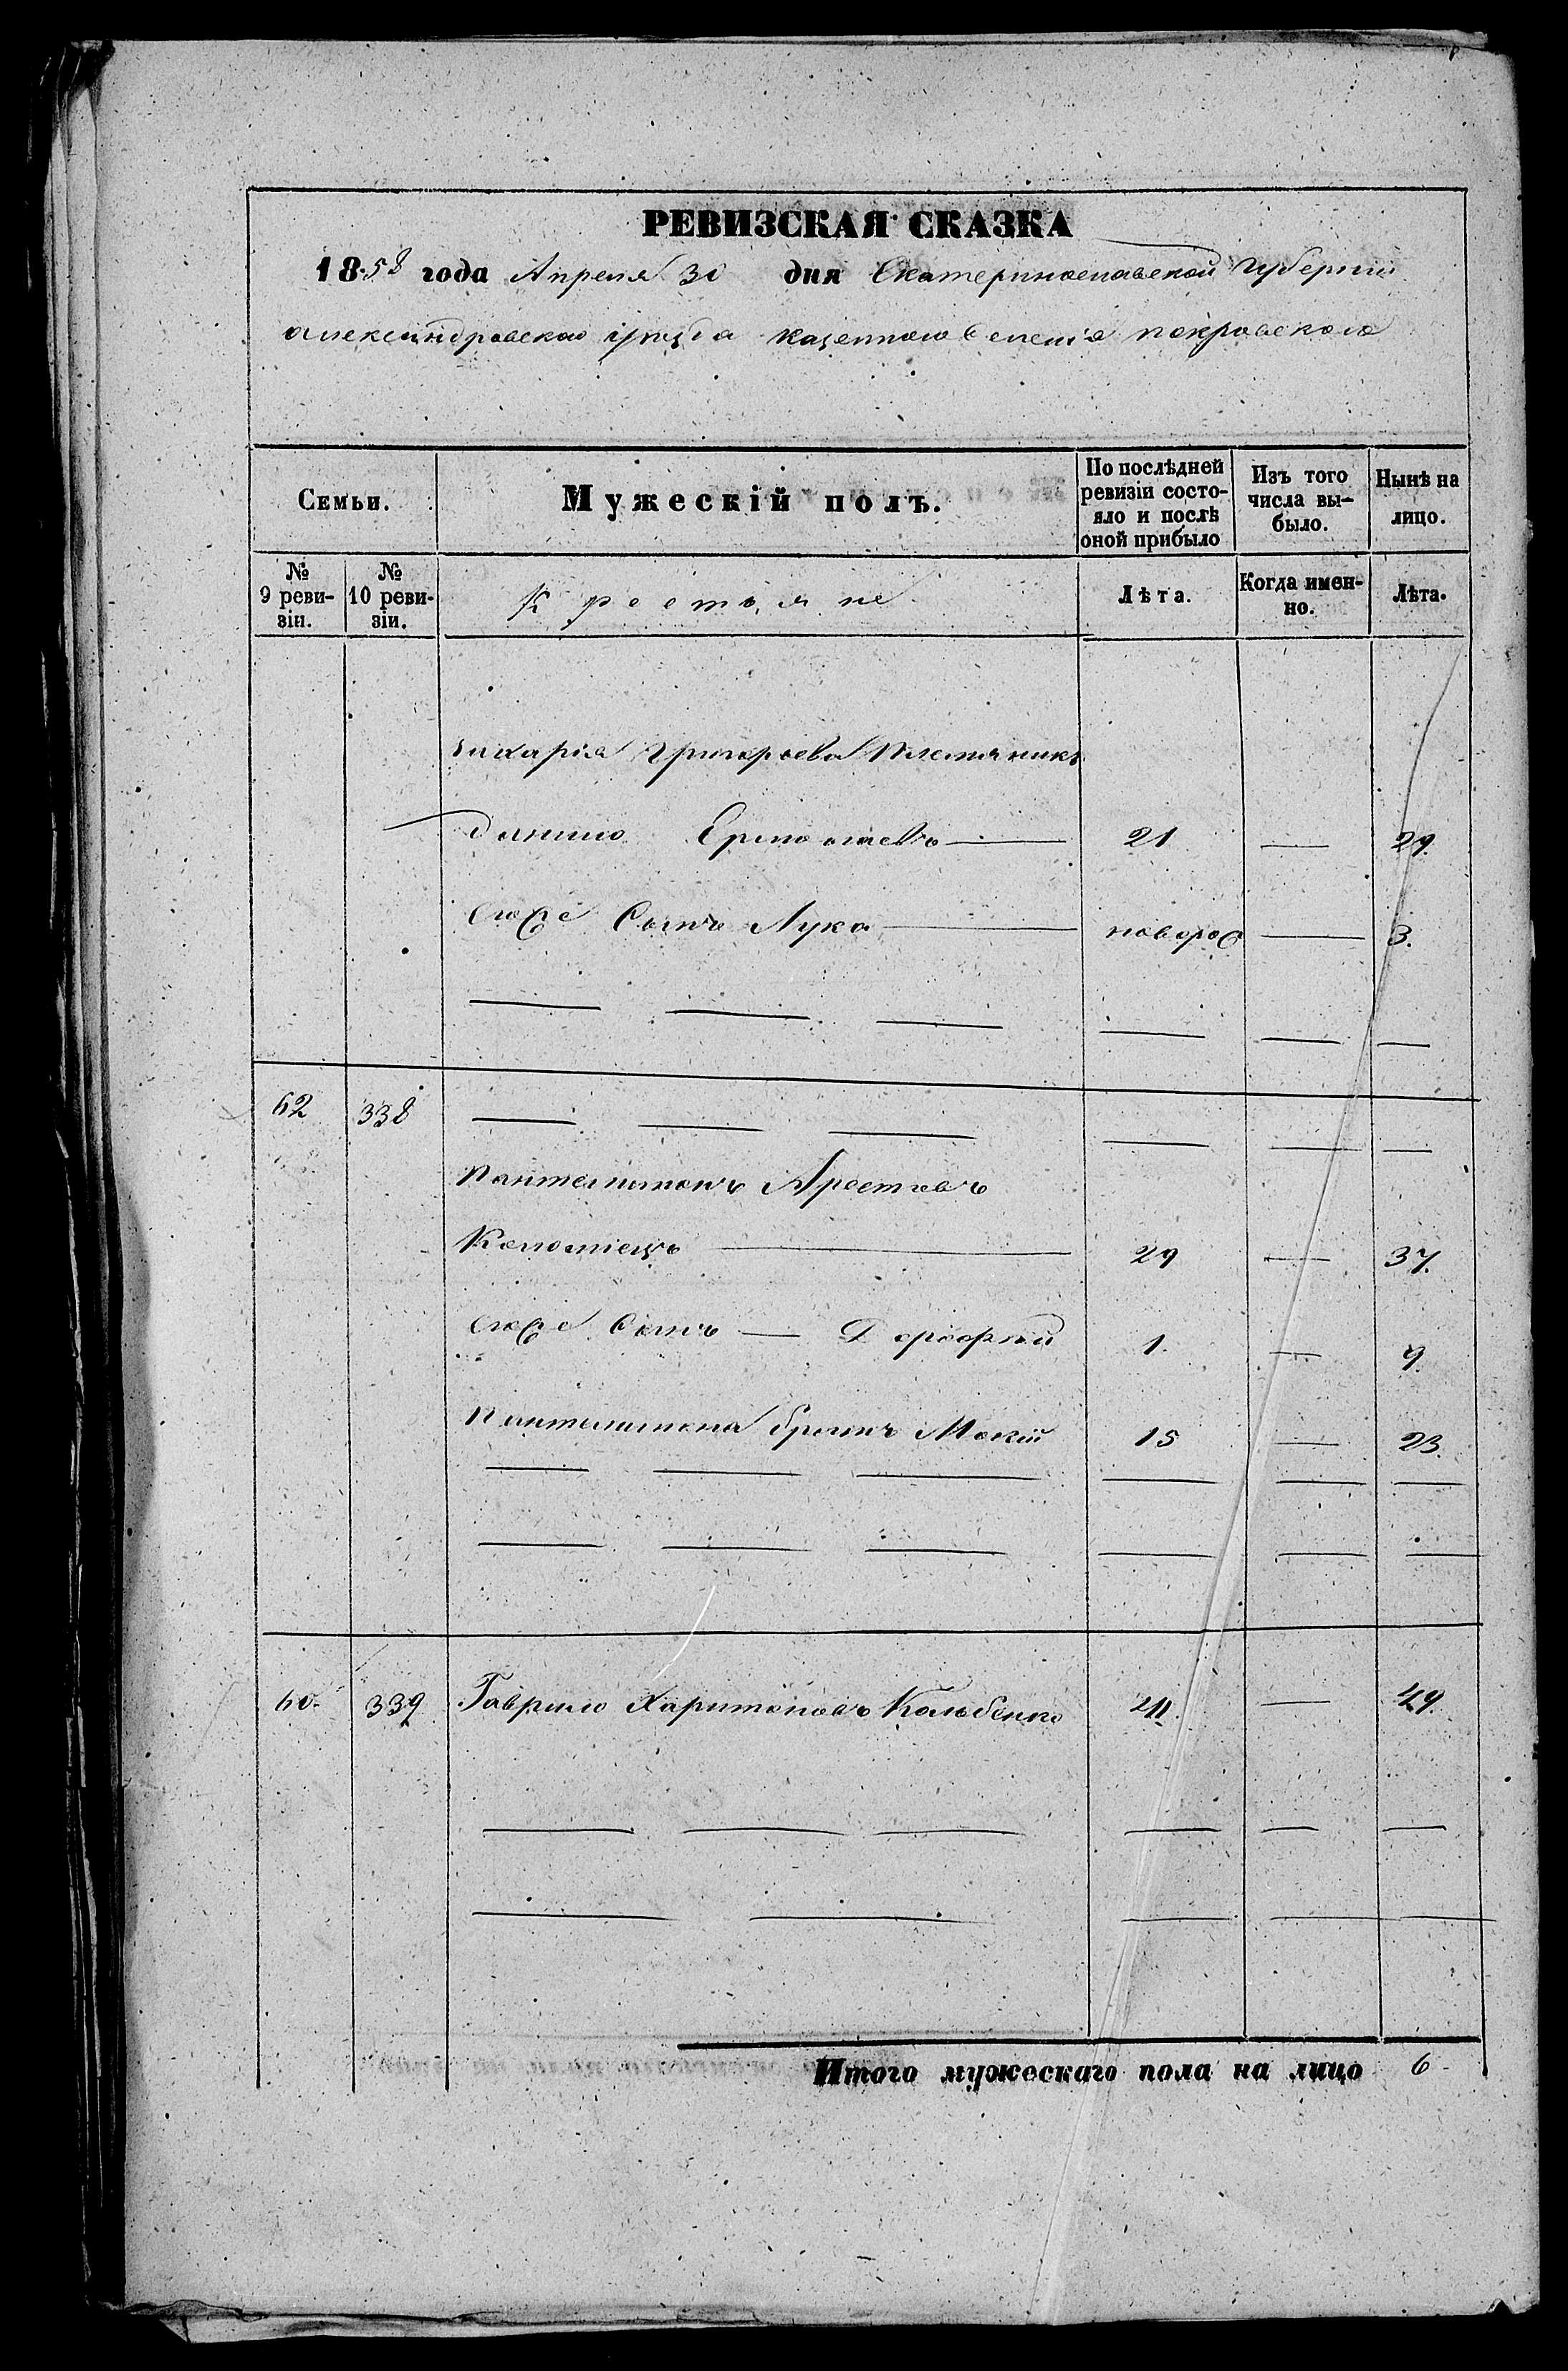 РЕВИЗСКАЯ СКАЗКА
1858 года Апреля 30 дня Екатеринославской Губернии
Александровскаго уѣзда казеннаго селенія Покровскаго
Семьи. Мужескій полъ. По послѣдней ревизіи состояло и послѣ оной прибыло Изъ того числа выбыло. Нынѣ на лицо.
№ 9 ревизіи. № 10 ревизіи. Крестьяне Лѣта. Когда именно. Лѣта.
Захарія Григорьева племяникъ
Данило Ермолаевъ 21 29.
Его сынъ Лука новорож 3.
62 338
Пантелимонъ Арестовъ
Коломіецъ 29 37.
сынъ 1. 9
Пантелимона братъ Мокій 15 23.
60. 339 Гаврило Харитоновъ 49.
Итого мужескаго пола на лицо 6